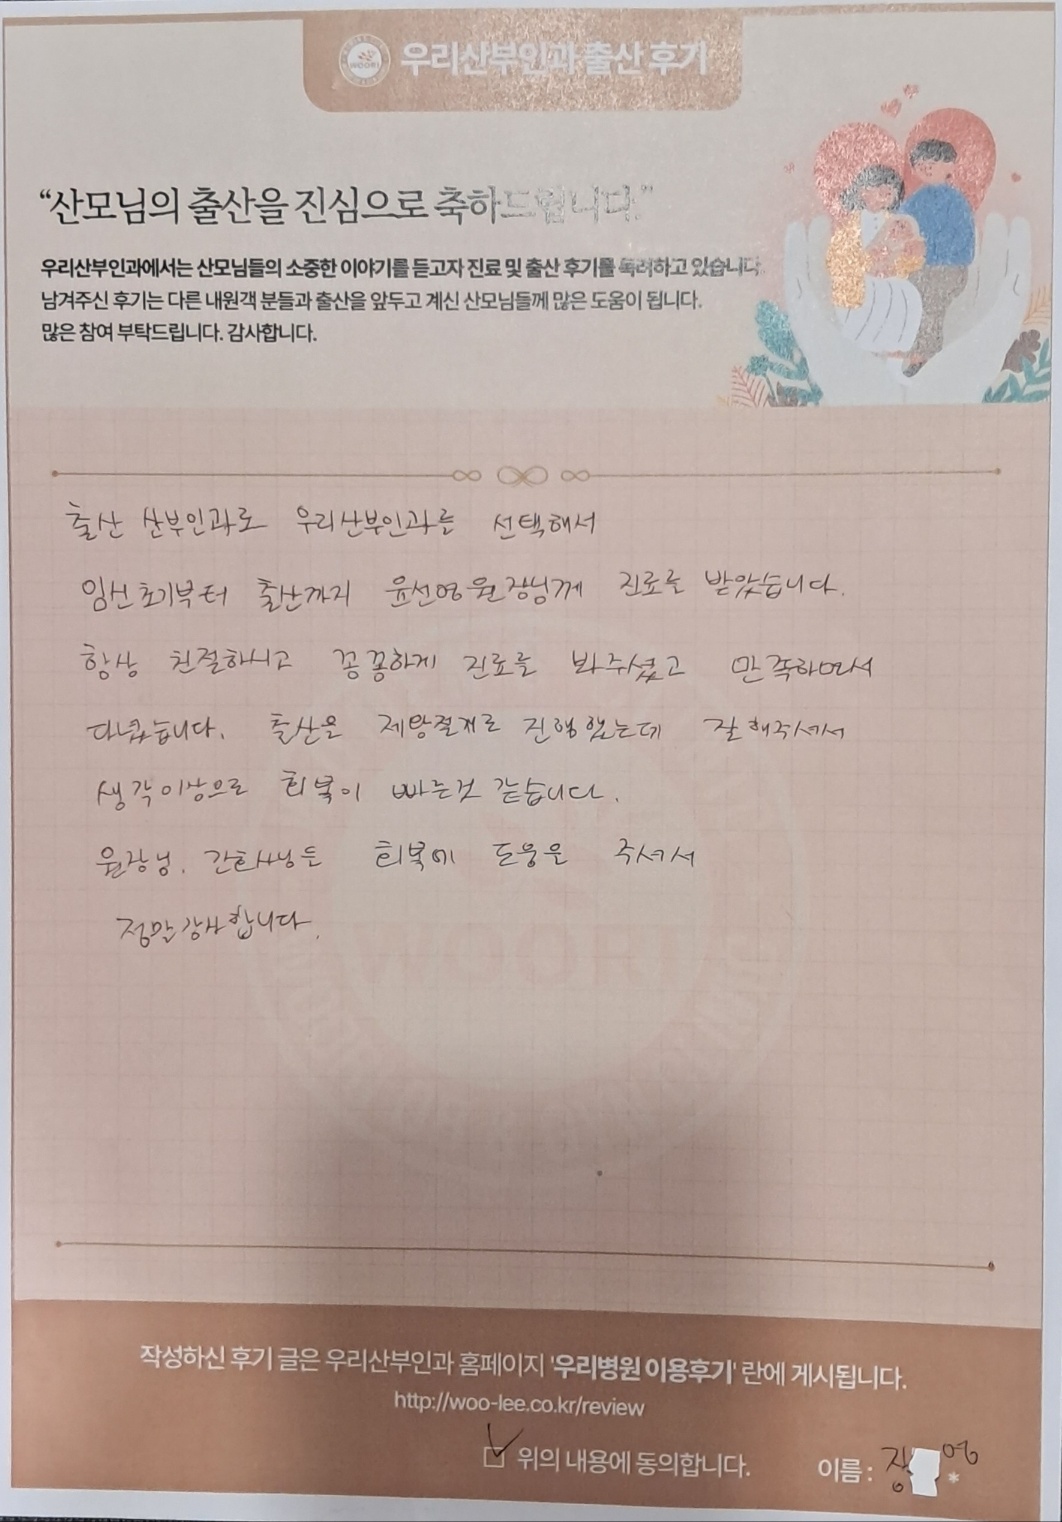 우리산부인과 출산 후기
“산모님의 출산을 진심으로 축하드립니다.”
우리산부인과에서는 산모님들의 소중한 이야기를 듣고자 진료 및 출산 후기를 독려하고 있습니다.
남겨주신 후기는 다른 내원객 분들과 출산을 앞두고 계신 산모님들께 많은 도움이 됩니다.
많은 참여 부탁드립니다. 감사합니다.
출산 산부인과로 우리산부인과를 선택해서
임신초기부터 출산까지 윤선영원장님께 진료를 받았습니다.
항상 친절하시고 꼼꼼하게 진료를 봐주셨고 만족하면서
다녔습니다. 출산은 제왕절개로 진행했는데 잘해주셔서
생각이상으로 회복이 빠른것 같습니다.
원장님, 간호사님들 회복에 도움을 주셔서
정말감사합니다.
작성하신 후기 글은 우리산부인과 홈페이지 '우리병원 이용후기' 란에 게시됩니다.
http://woo-lee.co.kr/review
위의 내용에 동의합니다. 이름 : 장 * 영